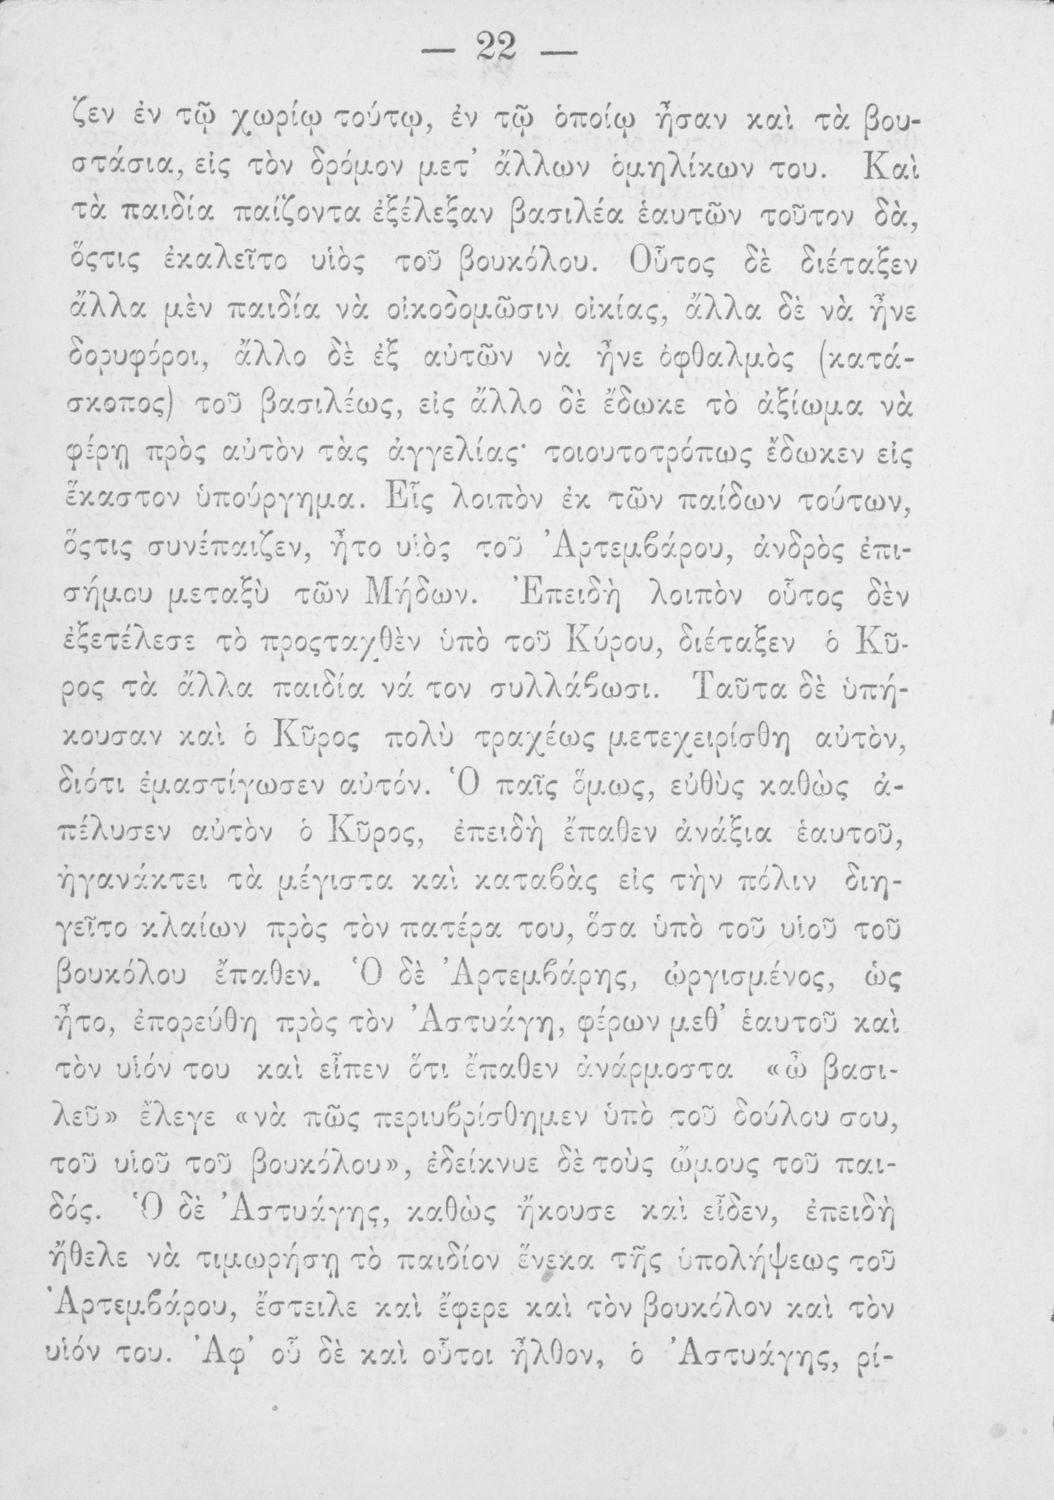 — 22 —
ζεν ἐν τῷ χωρίῳ τούτῳ, ἐν τῷ ὁποίῳ ἦσαν καὶ τὰ βου-
στάσια, εἰς τὸν δρόμον μετ’ ἄλλων ὁμηλίκων του. Καὶ
τὰ παιδία παίζοντα ἐξέλεξαν βασιλέα ἑαυτῶν τοῦτον δὰ,
ὅςτις ἐκαλεῖτο υἱὸς τοῦ βουκόλου. Οὗτος δὲ διέταξεν
ἄλλα μὲν παιδία νὰ οἰκοδομῶσιν οἰκίας, ἄλλα δὲ νὰ ἦνε
δορυφόροι, ἄλλο δὲ ἐξ αὐτῶν νὰ ἦνε ὀφθαλμὸς (κατά-
σκοπος) τοῦ βασιλέως, εἰς ἄλλο δὲ ἔδωκε τὸ ἀξίωμα νὰ
φέρῃ πρὸς αὐτὸν τὰς ἀγγελίας· τοιουτοτρόπως ἔδωκεν εἰς
ἕκαστον ὑπούργημα. Εἷς λοιπὸν ἐκ τῶν παίδων τούτων,
ὅςτις συνέπαιζεν, ἦτο υἱὸς τοῦ Ἀρτεμβάρου, ἀνδρὸς ἐπι-
σήμου μεταξὺ τῶν Μήδων. Ἐπειδὴ λοιπὸν οὗτος δὲν
ἐξετέλεσε τὸ προςταχθὲν ὑπὸ τοῦ Κύρου, διέταξεν ὁ Κῦ-
ρος τὰ ἄλλα παιδία νά τον συλλάβωσι. Ταῦτα δὲ ὑπή-
κουσαν καὶ ὁ Κῦρος πολὺ τραχέως μετεχειρίσθη αὐτὸν,
διότι ἐμαστίγωσεν αὐτόν. Ὁ παῖς ὅμως, εὐθὺς καθὼς ἀ-
πέλυσεν αὐτὸν ὁ Κῦρος, ἐπειδὴ ἔπαθεν ἀνάξια ἑαυτοῦ,
ἠγανάκτει τὰ μέγιστα καὶ καταβὰς εἰς τὴν πόλιν διη-
γεῖτο κλαίων πρὸς τὸν πατέρα του, ὅσα ὑπὸ τοῦ υἱοῦ τοῦ
βουκόλου ἔπαθεν. Ὁ δὲ Ἀρτεμβάρης, ὠργισμένος, ὡς
ἦτο, ἐπορεύθη πρὸς τὸν Ἀστυάγη, φέρων μεθ’ ἑαυτοῦ καὶ
τὸν υἱόν του καὶ εἶπεν ὅτι ἔπαθεν ἀνάρμοστα «ὦ βασι-
λεῦ» ἔλεγε «νὰ πῶς περιυβρίσθημεν ὑπὸ τοῦ δούλου σου,
τοῦ υἱοῦ τοῦ βουκόλου», ἐδείκνυε δὲ τοὺς ὤμους τοῦ παι-
δός. Ὁ δὲ Ἀστυάγης, καθὼς ἤκουσε καὶ εἶδεν, ἐπειδὴ
ἤθελε νὰ τιμωρήσῃ τὸ παιδίον ἕνεκα τῆς ὑπολήψεως τοῦ
Ἀρτεμβάρου, ἔστειλε καὶ ἔφερε καὶ τὸν βουκόλον καὶ τὸν
υἱόν του. Ἀφ’ οὗ δὲ καὶ οὗτοι ἦλθον, ὁ Ἀστυάγης, ρί-